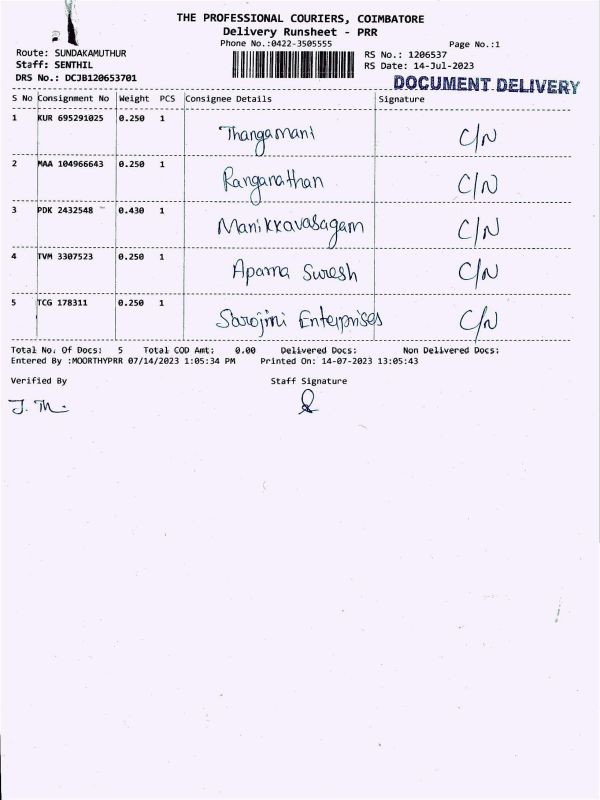 THE PROFESSIONAL COURIERS, COIMBATORE
Delivery Runsheet - PRR
Phone No.:0422-3505555 Page No.:1
Route: SUNDAKAMUTHUR RS No.: 1206537
Staff: SENTHIL RS Date: 14-Jul-2023
DRS No.: DCJB120653701 DOCUMENT DELIVERY
S No Consignment No Weight PCS Consignee Details Signature
1 KUR 695291025 0.250 1 Thangamani C/N
2 MAA 104966643 0.250 1 Ranganathan C/N
3 PDK 2432548 0.430 1 Manikkavasagam C/N
4 TVM 3307523 0.250 1 Aparna Suresh C/N
5 TCG 178311 0.250 1 Sarojini Enterprises C/N
Total No. Of Docs: 5 Total COD Amt: 0.00 Delivered Docs: Non Delivered Docs:
Entered By :MOORTHYPRR 07/14/2023 1:05:34 PM Printed On: 14-07-2023 13:05:43
Verified By Staff Signature